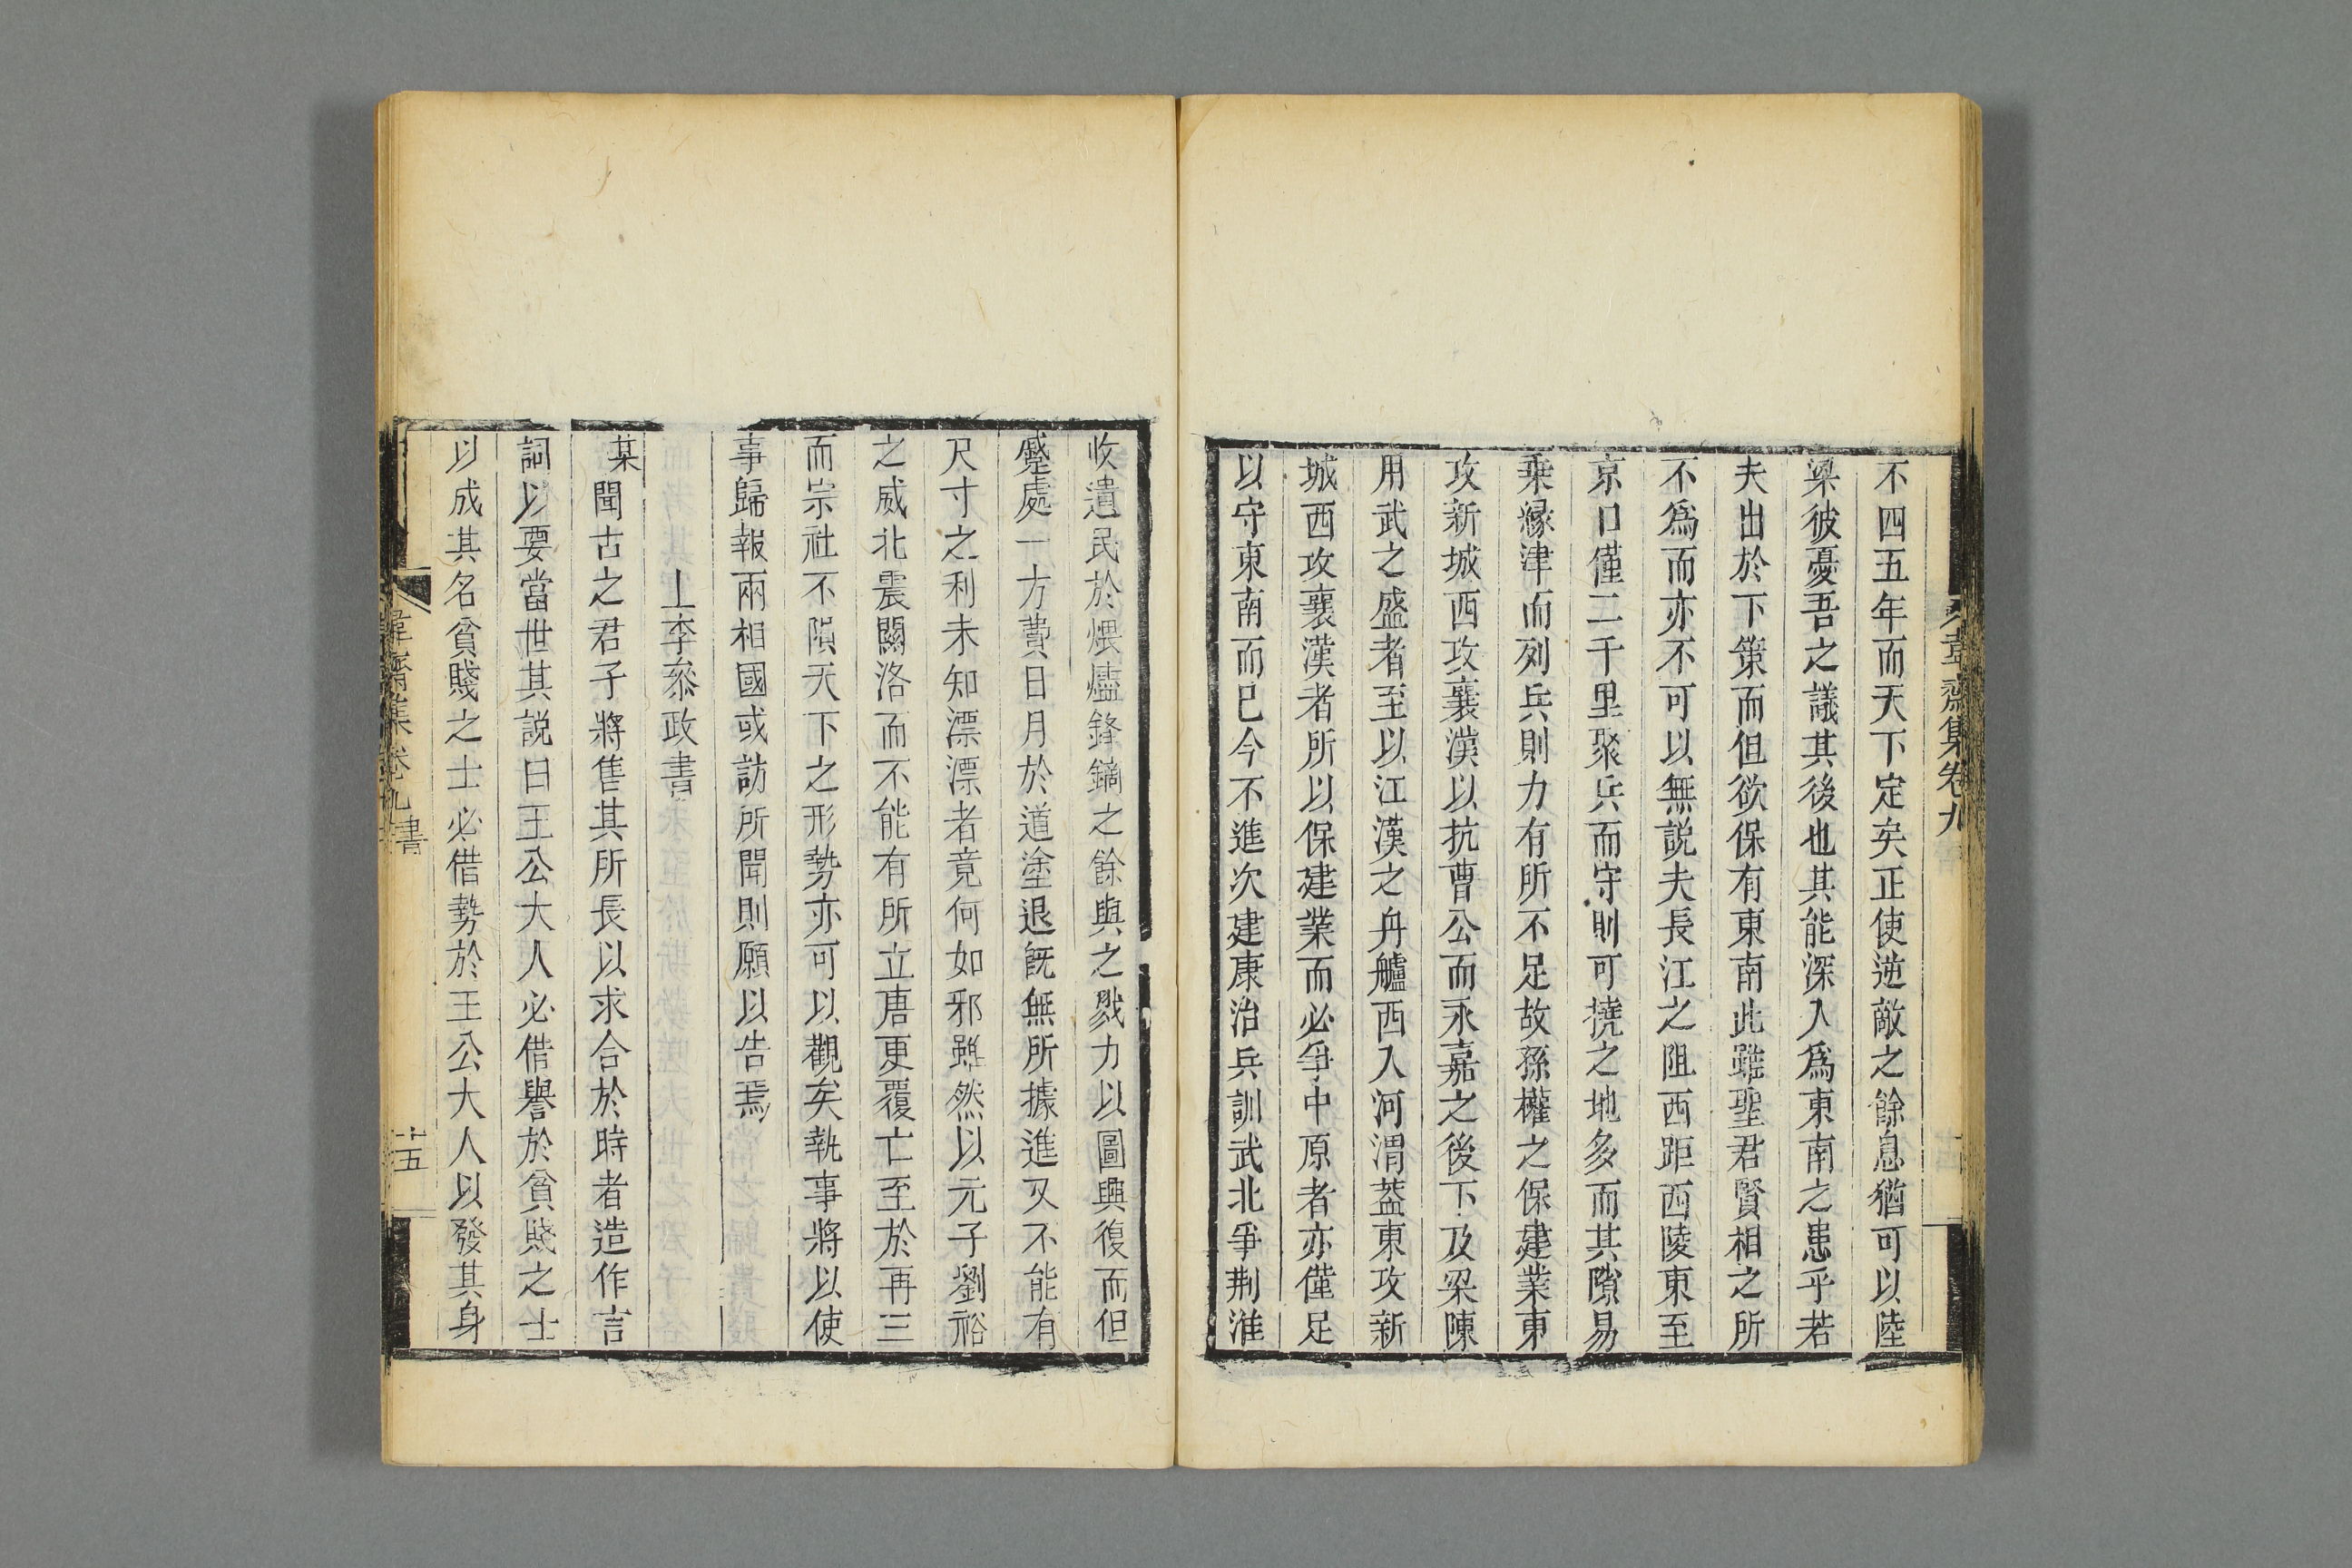 韋齋集卷九
不四五年而天下定矣正使逆敵之餘息猶可以陸
梁彼憂吾之議其後也其能深入爲東南之患乎若
夫出於下策而但欲保有東南此雖聖君賢相之所
不爲而亦不可以無説夫長江之阻西距西陵東至
京口僅二千里聚兵而守則可撓之地多而其隙易
乗縁津而列兵則力有所不足故孫權之保建業東
攻新城西攻襄漢以抗曹公而永嘉之後下及梁陳
用武之盛者至以江漢之舟艫西入河渭葢東攻新
城西攻襄漢者所以保建業而必爭中原者亦僅足
以守東南而已今不進次建康治兵訓武北爭荆淮
收遺民於煨燼鋒鏑之餘與之戮力以圖興復而但
蹙處一方費日月於道塗退旣無所據進又不能有
尺寸之利未知漂漂者竟何如邪雖然以元子劉裕
之威北震關洛而不能有所立唐更覆亡至於再三
而宗社不隕天下之形勢亦可以觀矣執事將以使
事歸報兩相國或訪所聞則願以告焉
上李叅政書
某聞古之君子將售其所長以求合於時者造作言
詞以要當世其説曰王公大人必借譽於貧賤之士
以成其名貧賤之士必借勢於王公大人以發其身
韋齋集卷九 書
十五